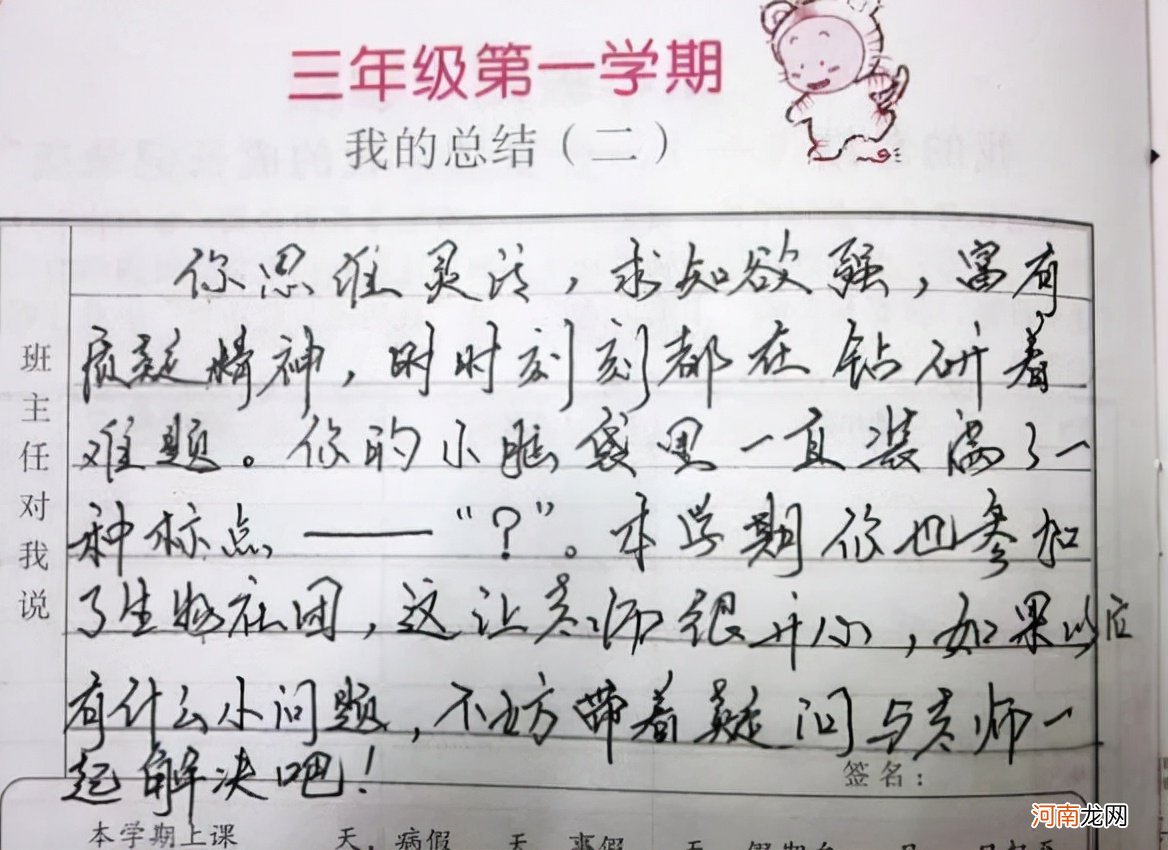 三年级第一学期
我的总结（二）
班主任对我说
你思维灵活，求知欲强，富有
质疑精神，时时刻刻都在钻研着
难题。你的小脑袋里一直装满了一
种标点——“？”。本学期你也参加
了生物社团，这让老师很开心，如果以后
有什么小问题，不妨带着疑问与老师一
起解决吧！
签名：
本学期上课 天，病假 天 事假
河南龙网